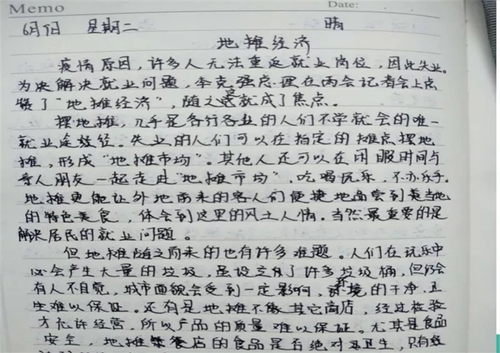 Memo Date:
6月1日 星期二 晴
地摊经济
疫情原因，许多人无法重返就业岗位，因此失业。
为决解决就业问题，李克强总理在两会记者会上点
赞了“地摊经济”，随之就成了焦点。
摆地摊，几乎是各行各业的人们不学就会的唯一
就业途效径。失业的人们可以在指定的摊点摆地
摊，形成“地摊市场”。其他人还可以在闲暇时间与
家人朋友一起走进“地摊市场”，吃喝玩乐，不亦乐乎。
地摊更能让外地而来的客人们便捷地品尝到美当地
的特色美食，体会到这里的风土人情。当然最重要的是
解决居民的就业问题。
但地摊随之而来的也有许多难题。人们在玩乐中
必会产生大量的垃圾，虽设立有了许多垃圾桶，但仍会
有人不自觉，城市面貌会受到一定影响，环境的干净卫
生难以保证。还有是地摊不像其它商店，经过检验
才允许经营，所以产品的质量难以保证。尤其是食品
安全，地摊餐食店的食品是否绝对卫生，只有